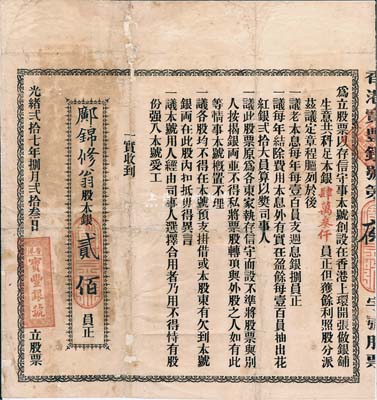 香港寶豐銀號第
字號股票
為立股票以存信守事本號創設在香港上環開張做銀舖
生意共科足本銀肆萬叁仟員正但獲餘利照股分派
茲議定章程臚列於後
一議老本息每年每壹百員支週息銀捌員正
一議每年結除費用本息外有實在盈餘每壹百員抽出花
紅銀弍拾大員算以獎司事人
一議此股票原為各東家執存信守而設不準將股票與別
人按揭銀両並不得私將票股轉項與外股之人如有此
等情事本號概置不理
一議各股均不得在本號預支掛借或本股東有欠到本號
銀両在此股內扣抵毋得異言
一議本號用人經由司事人選擇合用者乃用不得恃有股
份強入本號受工
一實收到
鄺錦修翁股本銀貳佰員正
光緒弍拾七年捌月弍拾叁日
寶豐銀號
立股票